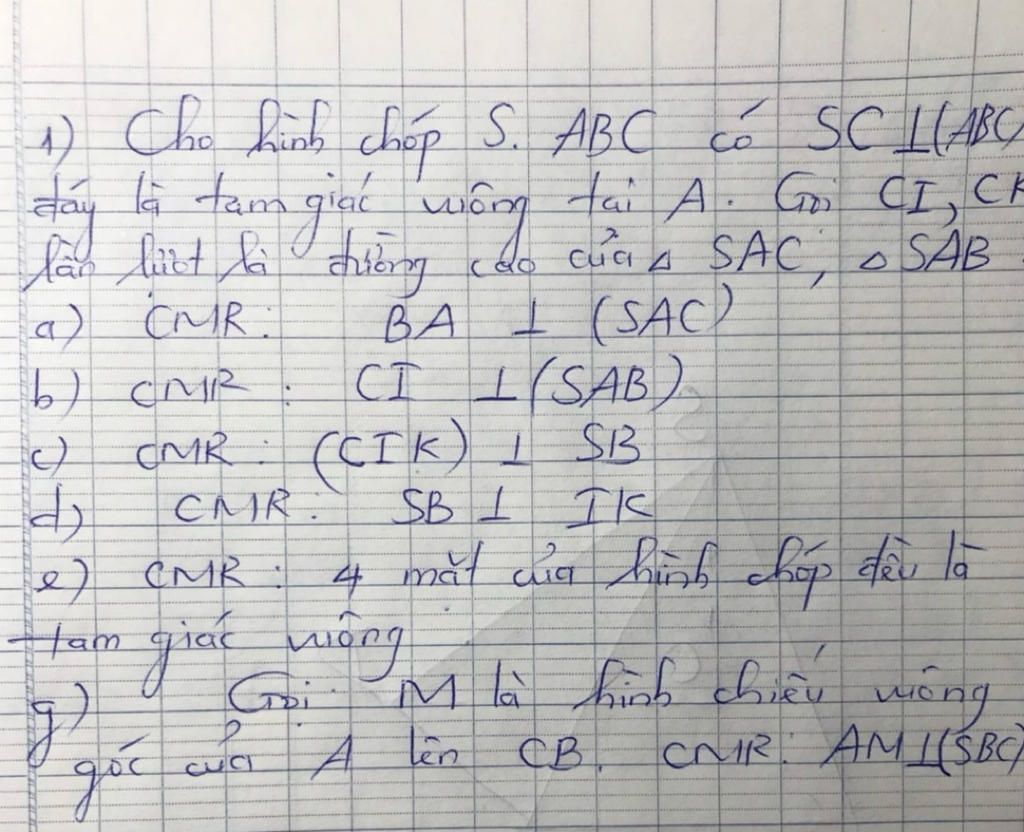 1) Cho hình chóp S. ABC có SC ⊥ (ABC)
đáy là tam giác vuông tại A. Gọi CI, CK
lần lượt là đường cao của △ SAC, △ SAB.
a) CMR: BA ⊥ (SAC)
b) CMR: CI ⊥ (SAB)
c) CMR: (CIK) ⊥ SB
d) CMR: SB ⊥ IK
e) CMR: 4 mặt của hình chóp đều là
tam giác vuông
g) Gọi M là hình chiếu vuông
góc của A lên CB. CMR: AM ⊥ (SBC)